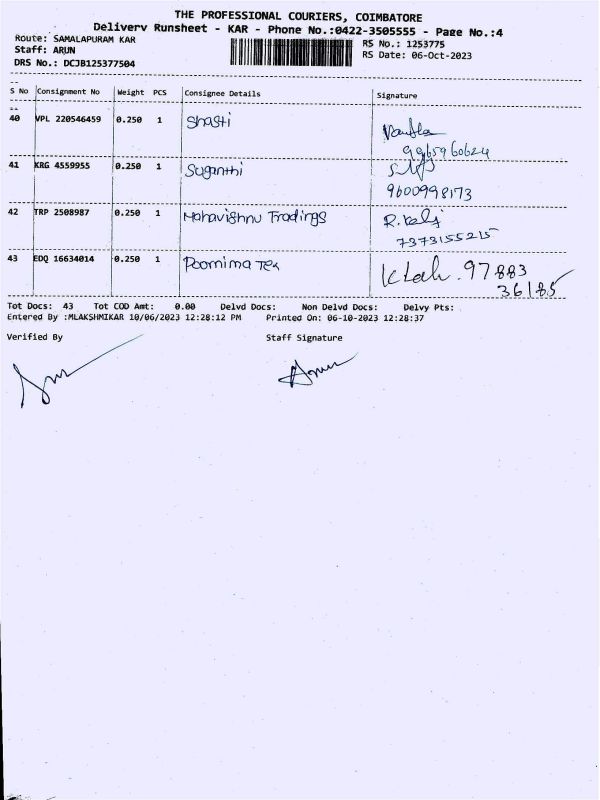 THE PROFESSIONAL COURIERS, COIMBATORE
Delivery Runsheet - KAR - Phone No.:0422-3505555 - Page No.:4
Route: SAMALAPURAM KAR
RS No.: 1253775
Staff: ARUN
RS Date: 06-Oct-2023
DRS No.: DCJB125377504
S No Consignment No Weight PCS Consignee Details Signature
40 VPL 220546459 0.250 1 Shasti
9965960624
41 KRG 4559955 0.250 1 Suganthi
9600998173
42 TRP 2508987 0.250 1 Mahavishnu Tradings R.
7373155215
43 EDQ 16634014 0.250 1 Poornima Tex 97883
36185
Tot Docs: 43 Tot COD Amt: 0.00 Delvd Docs: Non Delvd Docs: Delvy Pts:
Entered By :MLAKSHMIKAR 10/06/2023 12:28:12 PM Printed On: 06-10-2023 12:28:37
Verified By Staff Signature